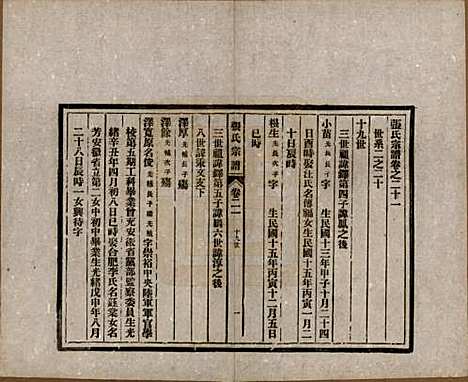 張氏宗譜卷之二十一
世系二之二十
十九世
三世祖諱鐸第四子諱鳳之後
小苗 生長子 字 生民國十三年甲子十月二十四
日酉時娶汪氏名傳福女生民國十五年丙寅一月二
十日辰時
根生 生長次子 字 生民國十五年丙寅十二月五日
巳時
張氏宗譜 卷二一 十九世 一
三世祖諱鐸第五子諱鵬六世諱淳之後
八世諱秉文支下
澤厚 光楨次子 殤
澤餘 光楨長子 殤
澤寬原名俊 光楨長子繼光 字榮裕中央陸軍軍官學
校第五期工科畢業曾充安徽省黨部監察委員生光
緒辛丑年四月初八日巳時娶合肥李氏名註棠女名
芳安徽省立第二女中初中畢業生光緒戊申年八月
二十八日辰時一女興待字